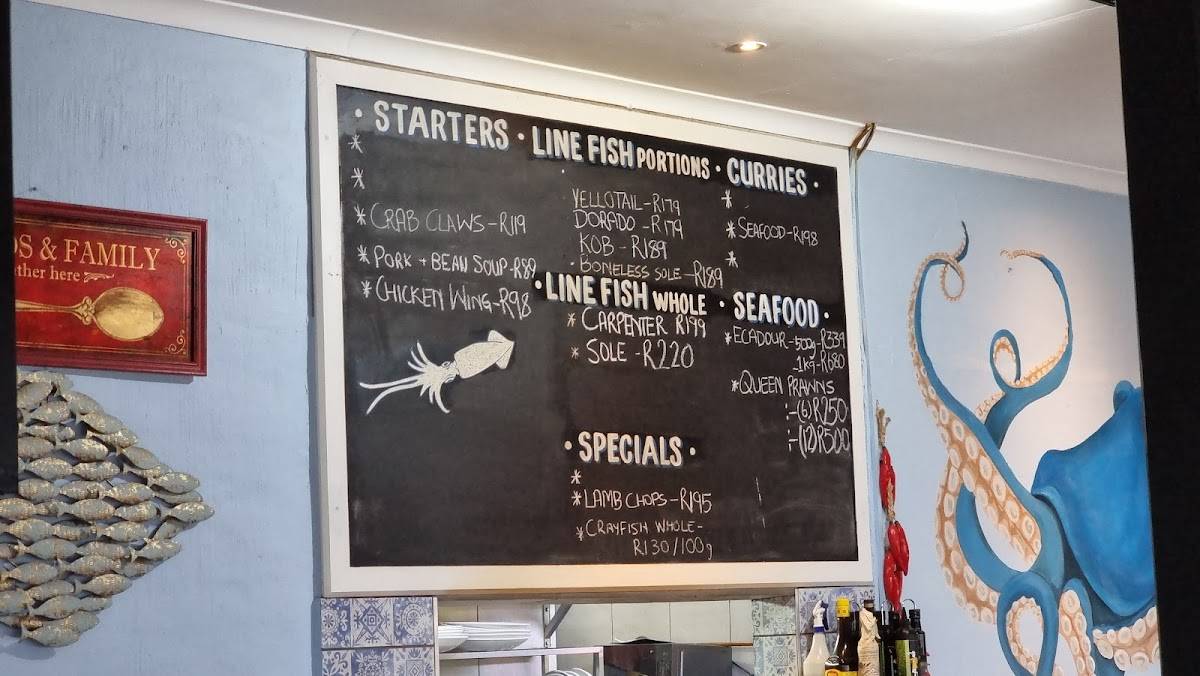 · STARTERS ·
*
*
* CRAB CLAWS - R119
* PORK + BEAN SOUP - R89
* CHICKEN WING - R98
LINE FISH PORTIONS ·
YELLOTAIL - R179
DORADO - R179
KOB - R189
· BONELESS SOLE - R189
· LINE FISH WHOLE ·
* CARPENTER R199
* SOLE - R220
· SPECIALS ·
*
* LAMB CHOPS - R195
* CRAYFISH WHOLE -
R130/100g
CURRIES ·
*
* SEAFOOD - R198
*
SEAFOOD ·
* ECADOUR - 500g - R339
- 1kg - R680
* QUEEN PRAWNS
:- (6) R250
:- (12) R500
& FAMILY
here